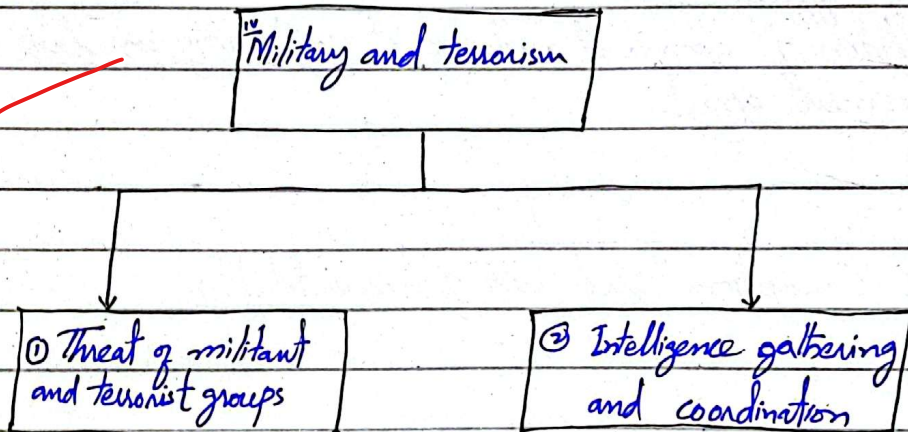 iv
Military and terrorism
① Threat of militant
and terrorist groups
② Intelligence gathering
and coordination